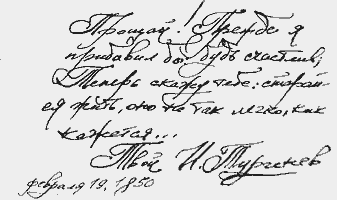 Прощай! Прежде я
прибавил бы: будь счастлив;
Теперь скажу тебе: старай-
ся жить, оно не так легко, как
кажется...
Твой И. Тургенев
февраля 19. 1850